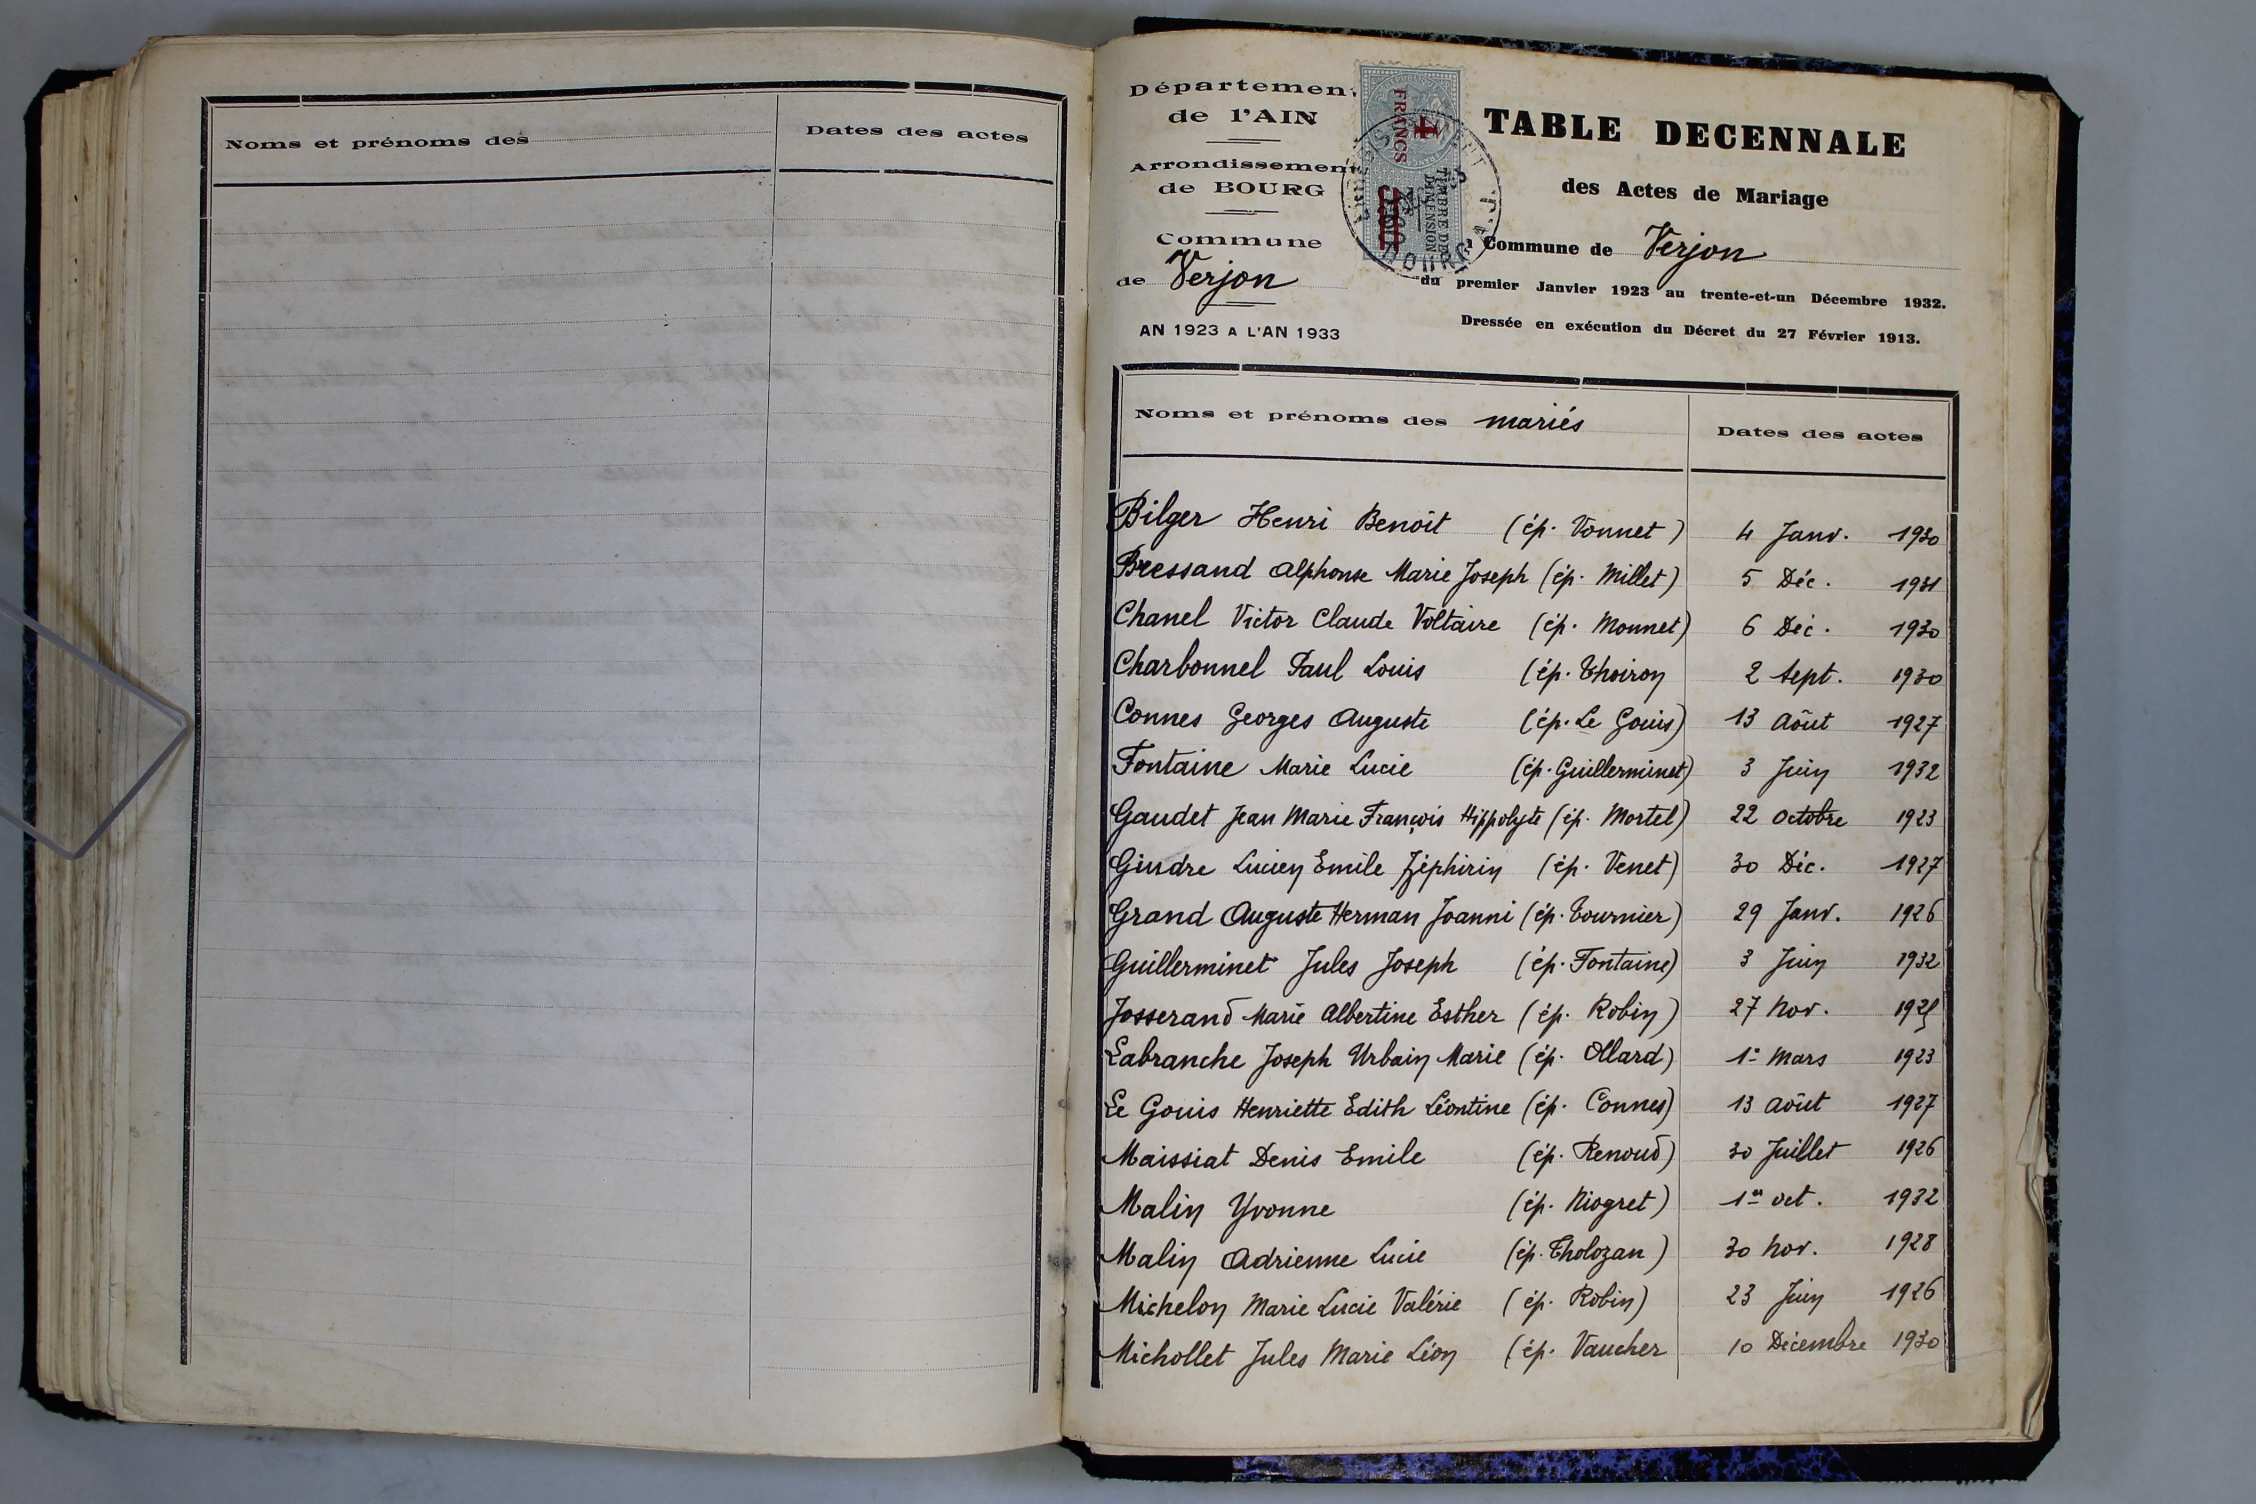 Noms et prénoms des
Dates des actes
Département
de l'AIN
Arrondissement
de BOURG
Commune
de Verjon
AN 1923 A L'AN 1933
4
FRANCS
TIMBRE DE
DIMENSION
TABLE DECENNALE
des Actes de Mariage
Commune de Verjon
du premier Janvier 1923 au trente-et-un Décembre 1932.
Dressée en exécution du Décret du 27 Février 1913.
Noms et prénoms des mariés
Dates des actes
Bilger Henri Benoit (ép. Vonnet) 4 Janv. 1930
Bressand Alphonse Marie Joseph (ép. Millet) 5 Déc. 1931
Chanel Victor Claude Voltaire (ép. Monnet) 6 Déc. 1930
Charbonnel Paul Louis (ép. Thoiron 2 Sept. 1930
Connes Georges Auguste (ép. Le Gouis) 13 Août 1927
Fontaine Marie Lucie (ép. Guillerminet) 3 Juin 1932
Gaudet Jean Marie François Hippolyte (ép. Mortel) 22 Octobre 1923
Gindre Lucien Emile Zéphirin (ép. Venet) 30 Déc. 1927
Grand Auguste Herman Joanni (ép. Tournier) 29 Janv. 1926
Guillerminet Jules Joseph (ép. Fontaine) 3 Juin 1932
Josserand Marie Albertine Esther (ép. Robin) 27 Nov. 1925
Labranche Joseph Urbain Marie (ép. Ollard) 1° Mars 1923
Le Gouis Henriette Edith Léontine (ép. Connes) 13 Août 1927
Maissiat Denis Emile (ép. Renoud) 30 Juillet 1926
Malin Yvonne (ép. Niogret) 1er Oct. 1932
Malin Adrienne Lucie (ép. Tholozan) 30 Nov. 1928
Michelon Marie Lucie Valérie (ép. Robin) 23 Juin 1926
Michollet Jules Marie Léon (ép. Vaucher 10 Décembre 1930